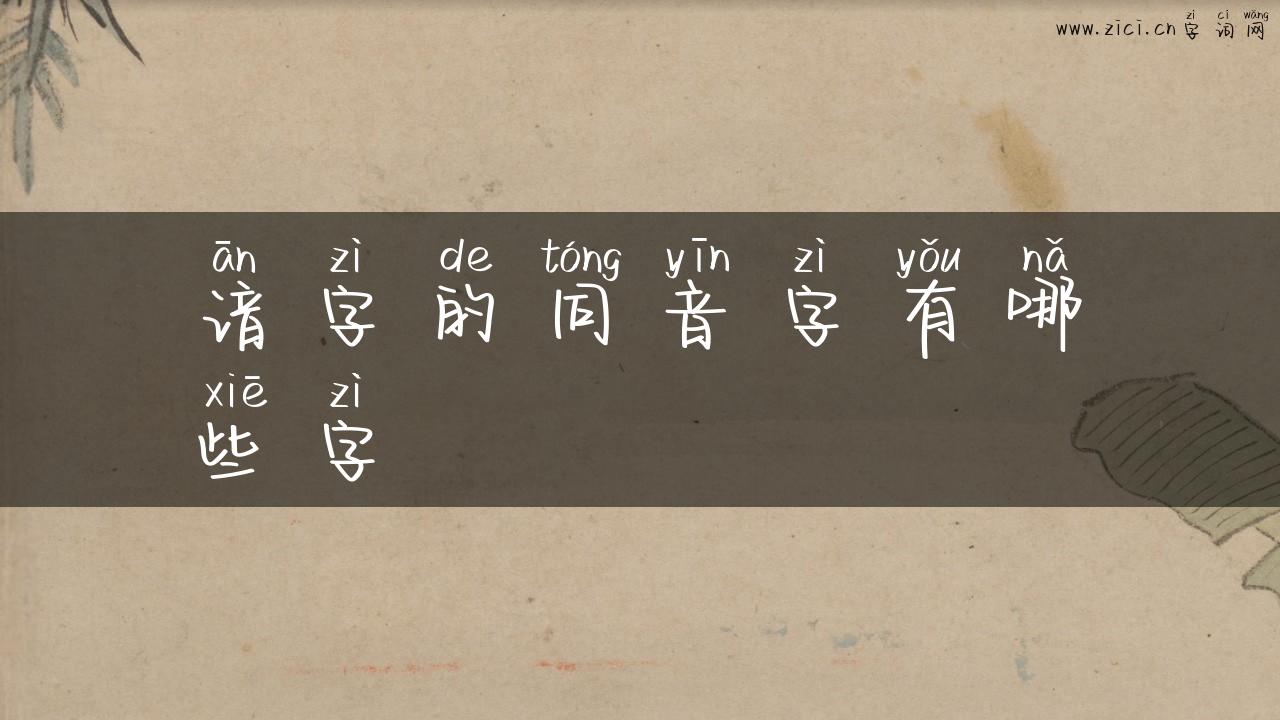 zì cí wǎng
www.zici.cn 字 词 网
ān zì de tóng yīn zì yǒu nǎ
谙 字 的 同 音 字 有 哪
xiē zì
些 字